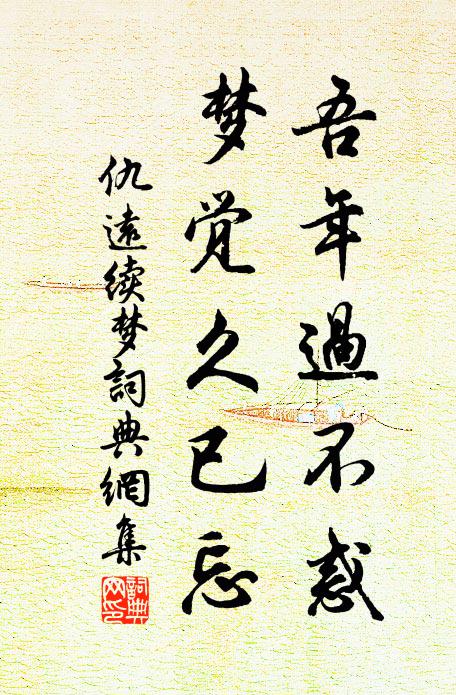 吾年過不惑
梦觉久已忘
仇遠续梦詞典網集
詞典
网印